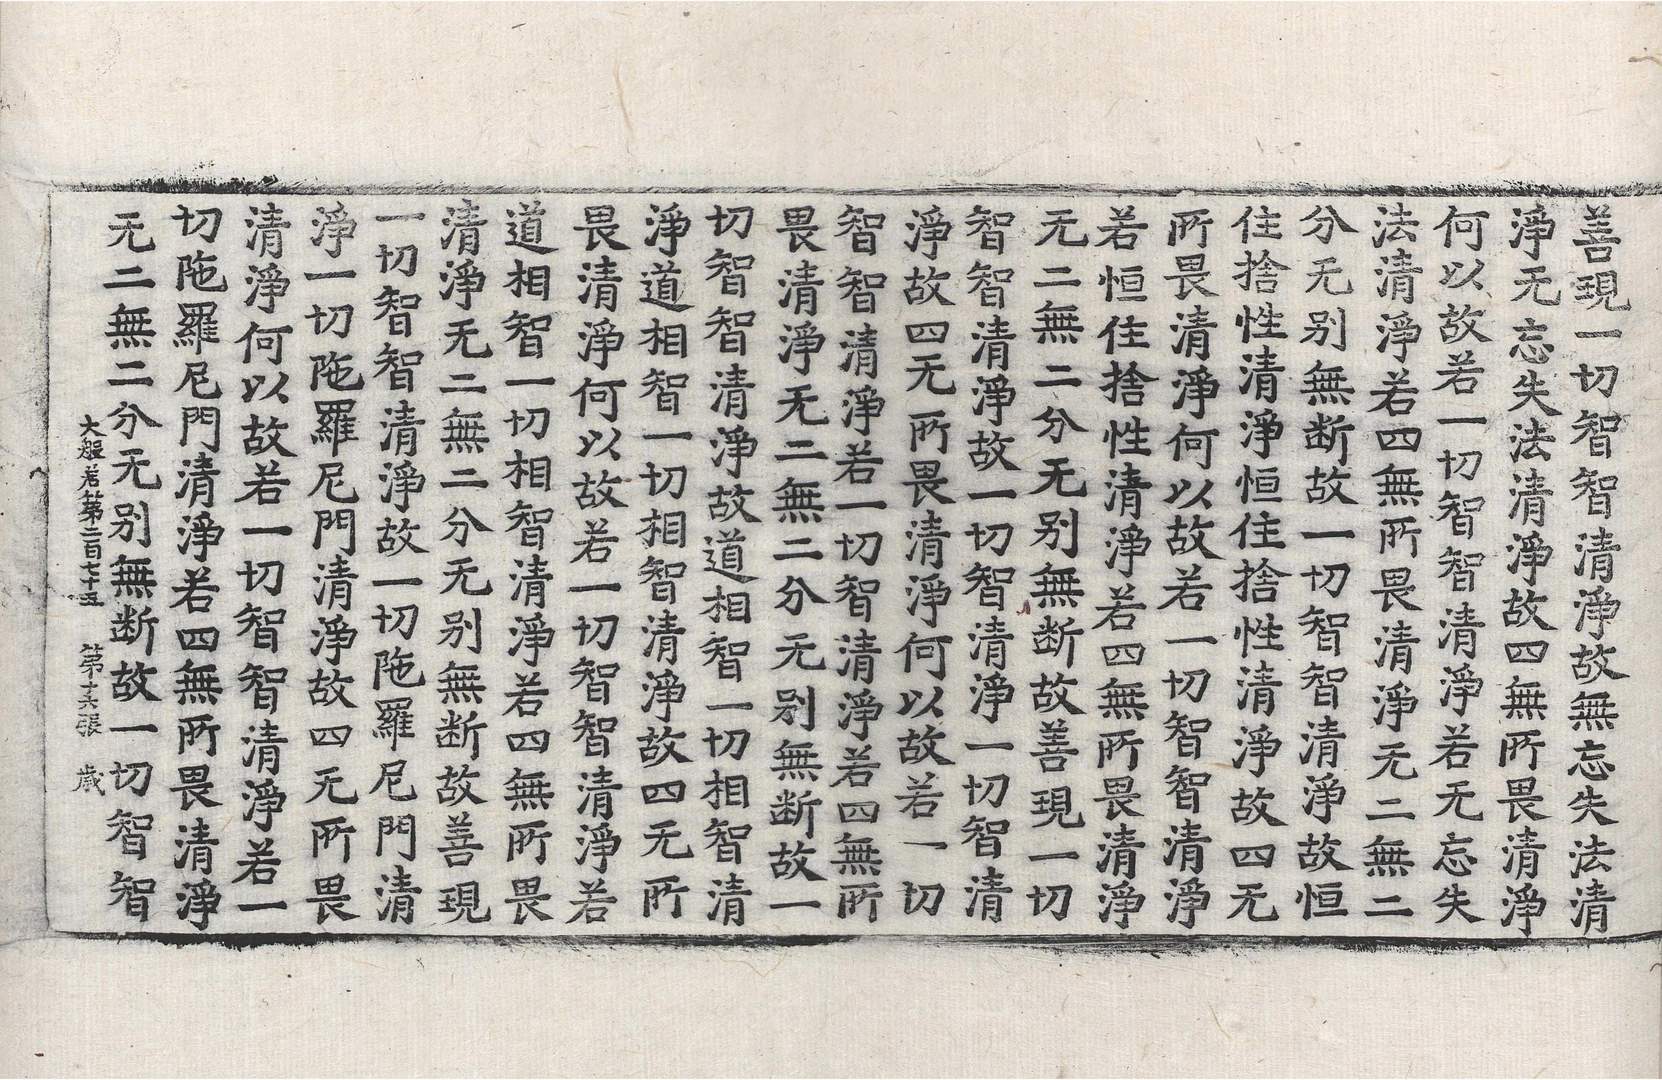 善現一切智智清淨故無忘失法清
淨无忘失法清淨故四無所畏清淨
何以故若一切智智清淨若无忘失
法清淨若四無所畏清淨无二無二
分无别無断故一切智智清淨故恒
住捨性清淨恒住捨性清淨故四无
所畏清淨何以故若一切智智清淨
若恒住捨性清淨若四無所畏清淨
无二無二分无别無断故善現一切
智智清淨故一切智清淨一切智清
淨故四无所畏清淨何以故若一切
智智清淨若一切智清淨若四無所
畏清淨无二無二分无别無断故一
切智智清淨故道相智一切相智清
淨道相智一切相智清淨故四无所
畏清淨何以故若一切智智清淨若
道相智一切相智清淨若四無所畏
清淨无二無二分无别無断故善現
一切智智清淨故一切陁羅尼門清
淨一切陁羅尼門清淨故四无所畏
清淨何以故若一切智智清淨若一
切陁羅尼門清淨若四無所畏清淨
无二無二分无别無断故一切智智
大般若第二百七十五 第十六張 歲